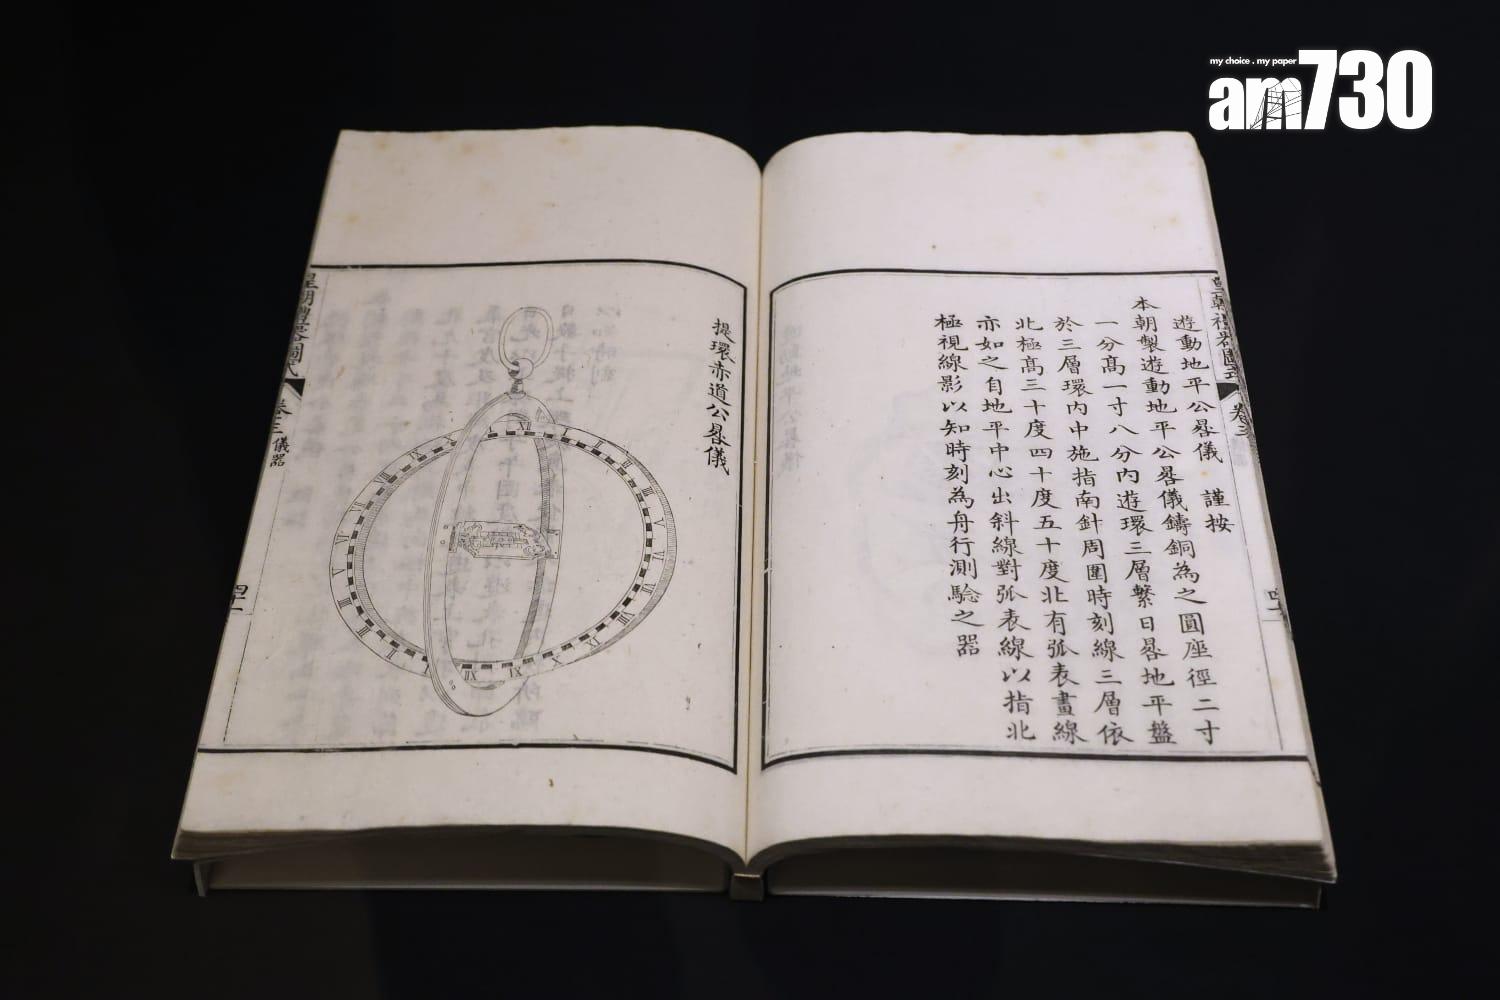 my choice . my paper
am730
皇朝禮器圖式 卷三
遊動地平公晷儀 謹按
本朝製遊動地平公晷儀鑄銅為之圓座徑二寸
一分高一寸八分內遊環三層繫日晷地平盤
於三層環內中施指南針周圍時刻線三層依
北極高三十度四十度五十度北有弧表畫線
亦如之自地平中心出斜線對弧表線以指北
極視線影以知時刻為舟行測驗之器
提環赤道公晷儀
皇朝禮器圖式 卷三 儀器